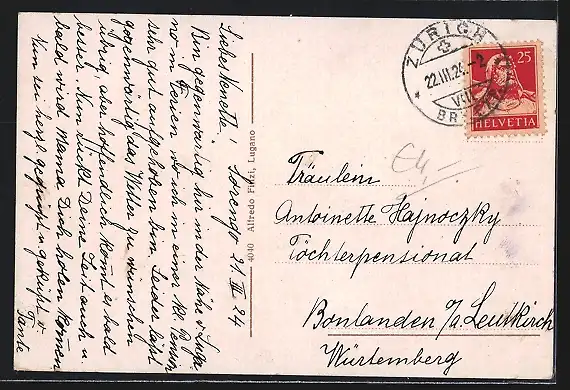 Liebes Nenette! Sorengo 21. III 24
Bin gegenwärtig hier in der Nähe v. Luga-
no in Ferien wo ich in einer kl. Pension
sehr gut aufgehoben bin. Leider läßt
gegenwärtig das Wetter zu wünschen
übrig, aber hoffendlich kommt es bald
besser. Nun rückt Deine Zeit auch u.
bald wird Mama Dich holen können.
Nun sei herzl. gegrüßt u. geküßt v.
Tante
4040 Alfredo Finzi, Lugano
ZÜRICH
22.III.24.-2
BR
25
HELVETIA
€4,-
Fräulein
Antoinette Hajnoczky
Töchterpensional
Bonlanden i/a Leutkirch
Würtemberg